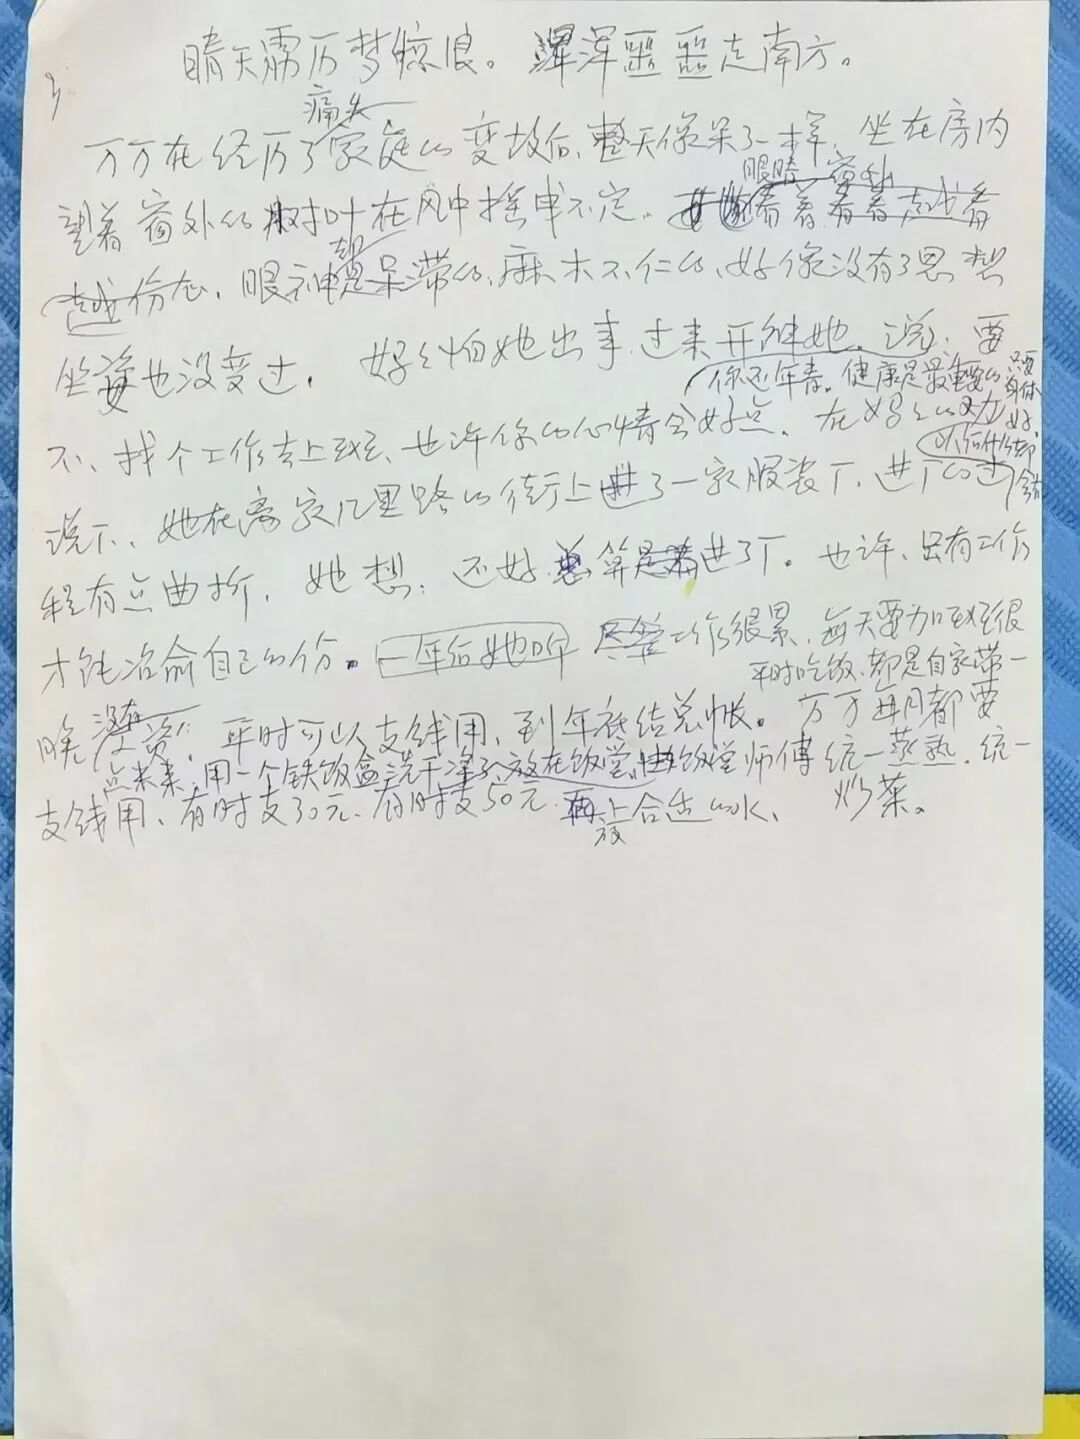 晴天雳历梦惊浪。浑浑噩噩走南方。
痛失
万万在经历了家庭的变故后、整天像呆了一样,坐在房内
眼睛
望着窗外的树叶在风中摇曳不定。看着看着越看
越伤心,眼神是呆滞的、麻木不仁的、好像没有了思想
坐姿也没变过。好红怕她出事、过来开解她、说:要
你还年青。健康是最重要的 只要身体好
不、找个工作去上班、也许你的心情会好点。在好红的劝
说下、她在离家几里路的街上进了一家服装厂、进厂的过
程有点曲折,她想:还好 算是进了厂。也许、只有工作
才能治愈自己的伤。一年后她 尽管工作很累、每天要加班很
平时吃饭、都是自家带一
晚 没有工资。平时可以支钱用、到年底结总帐。万万每月都要
点米来,用一个铁饭盒洗干净了、放在饭堂,由饭堂师傅统一蒸熟、统一
支钱用、有时支30元、有时支50元 再放上合适的水、炒菜。